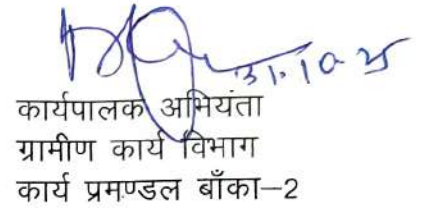 31.10.25
कार्यपालक अभियंता
ग्रामीण कार्य विभाग
कार्य प्रमण्डल बाँका-2